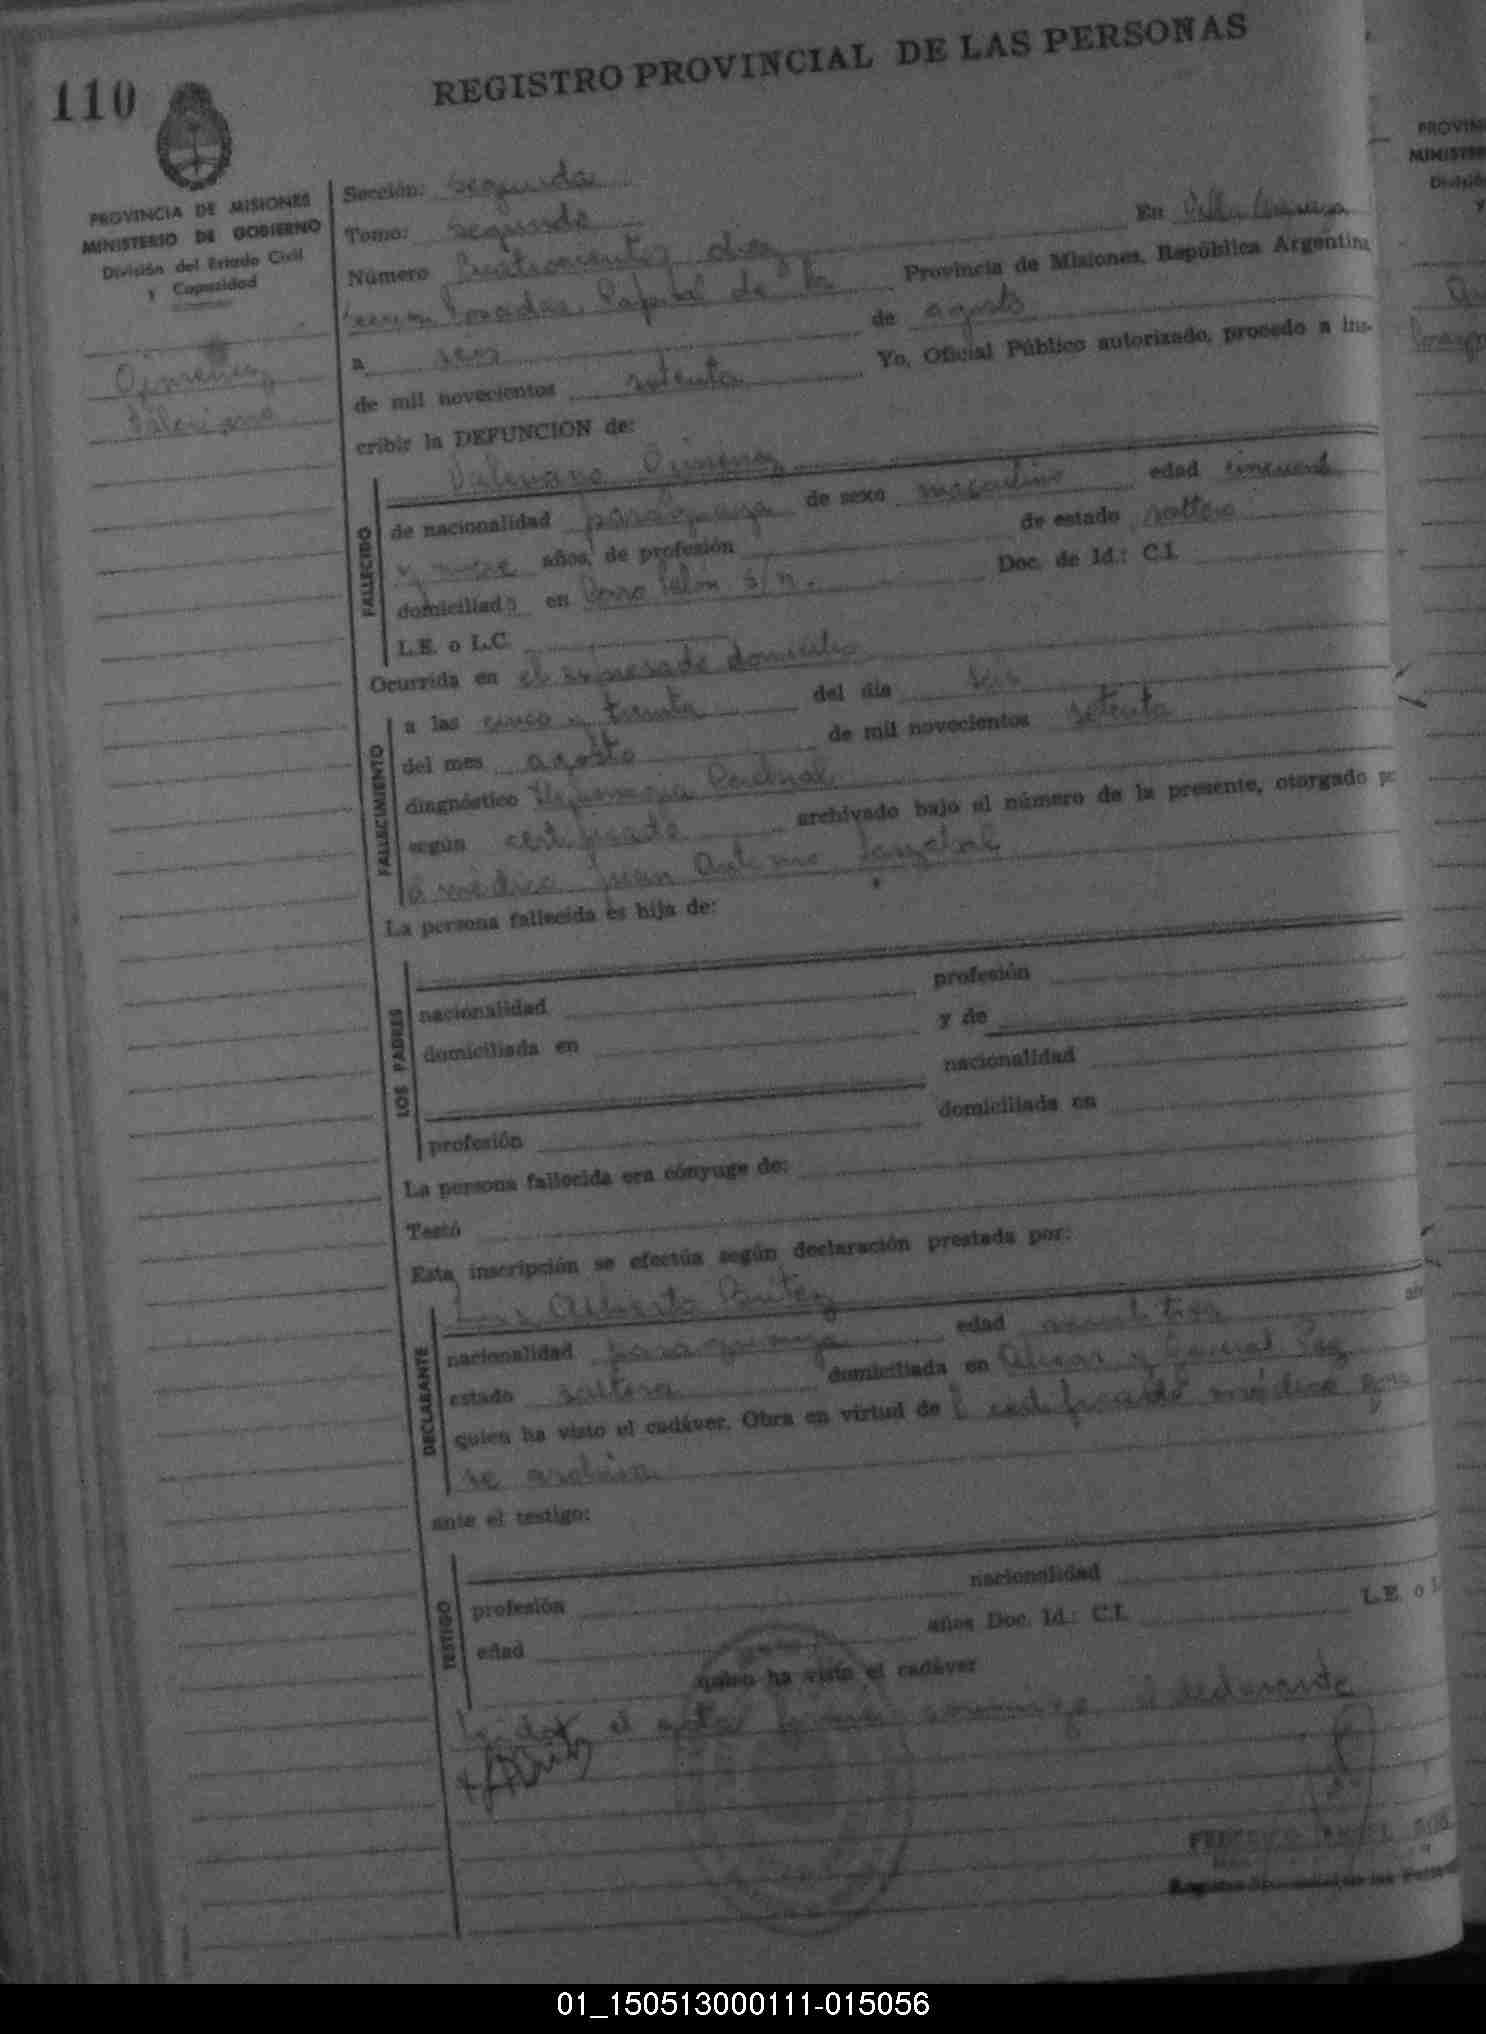 110
REGISTRO PROVINCIAL DE LAS PERSONAS
PROVINCIA DE MISIONES
MINISTERIO DE GOBIERNO
División del Estado Civil
y Capacidad
Gimenez
Valeriano
Sección: Segunda
Tomo: Segundo
Número Cuatrocientos diez En Villa
Posadas, Capital de la Provincia de Misiones, República Argentina
a seis de agosto
de mil novecientos setenta Yo, Oficial Público autorizado, procedo a ins-
cribir la DEFUNCION de:
Valeriano Gimenez
FALLECIDO
de nacionalidad paraguaya de sexo masculino edad cincuenta
y nueve años, de profesión de estado soltero
domiciliado en Cerro Pelón s/n. Doc. de Id.: C.I.
L.E. o L.C.
Ocurrida en el expresado domicilio
FALLECIMIENTO
a las cinco y treinta del día seis
del mes agosto de mil novecientos setenta
diagnóstico Hemorragia Cerebral
según certificado archivado bajo el número de la presente, otorgado po
el médico Juan Antonio
La persona fallecida es hija de:
LOS PADRES
profesión
nacionalidad
y de
domiciliada en
nacionalidad
domiciliada en
profesión
La persona fallecida era cónyuge de:
Testó
Esta inscripción se efectúa según declaración prestada por:
Luis Alberto Benitez
DECLARANTE
nacionalidad paraguaya edad
estado soltero domiciliada en y General Paz
quien ha visto el cadáver. Obra en virtud de l certificado médico que
se archiva
ante el testigo:
TESTIGO
profesión nacionalidad
edad años Doc. Id.: C.I. L.E. o L
quien ha visto el cadáver
Leída el acta firma conmigo el declarante
01_150513000111-015056